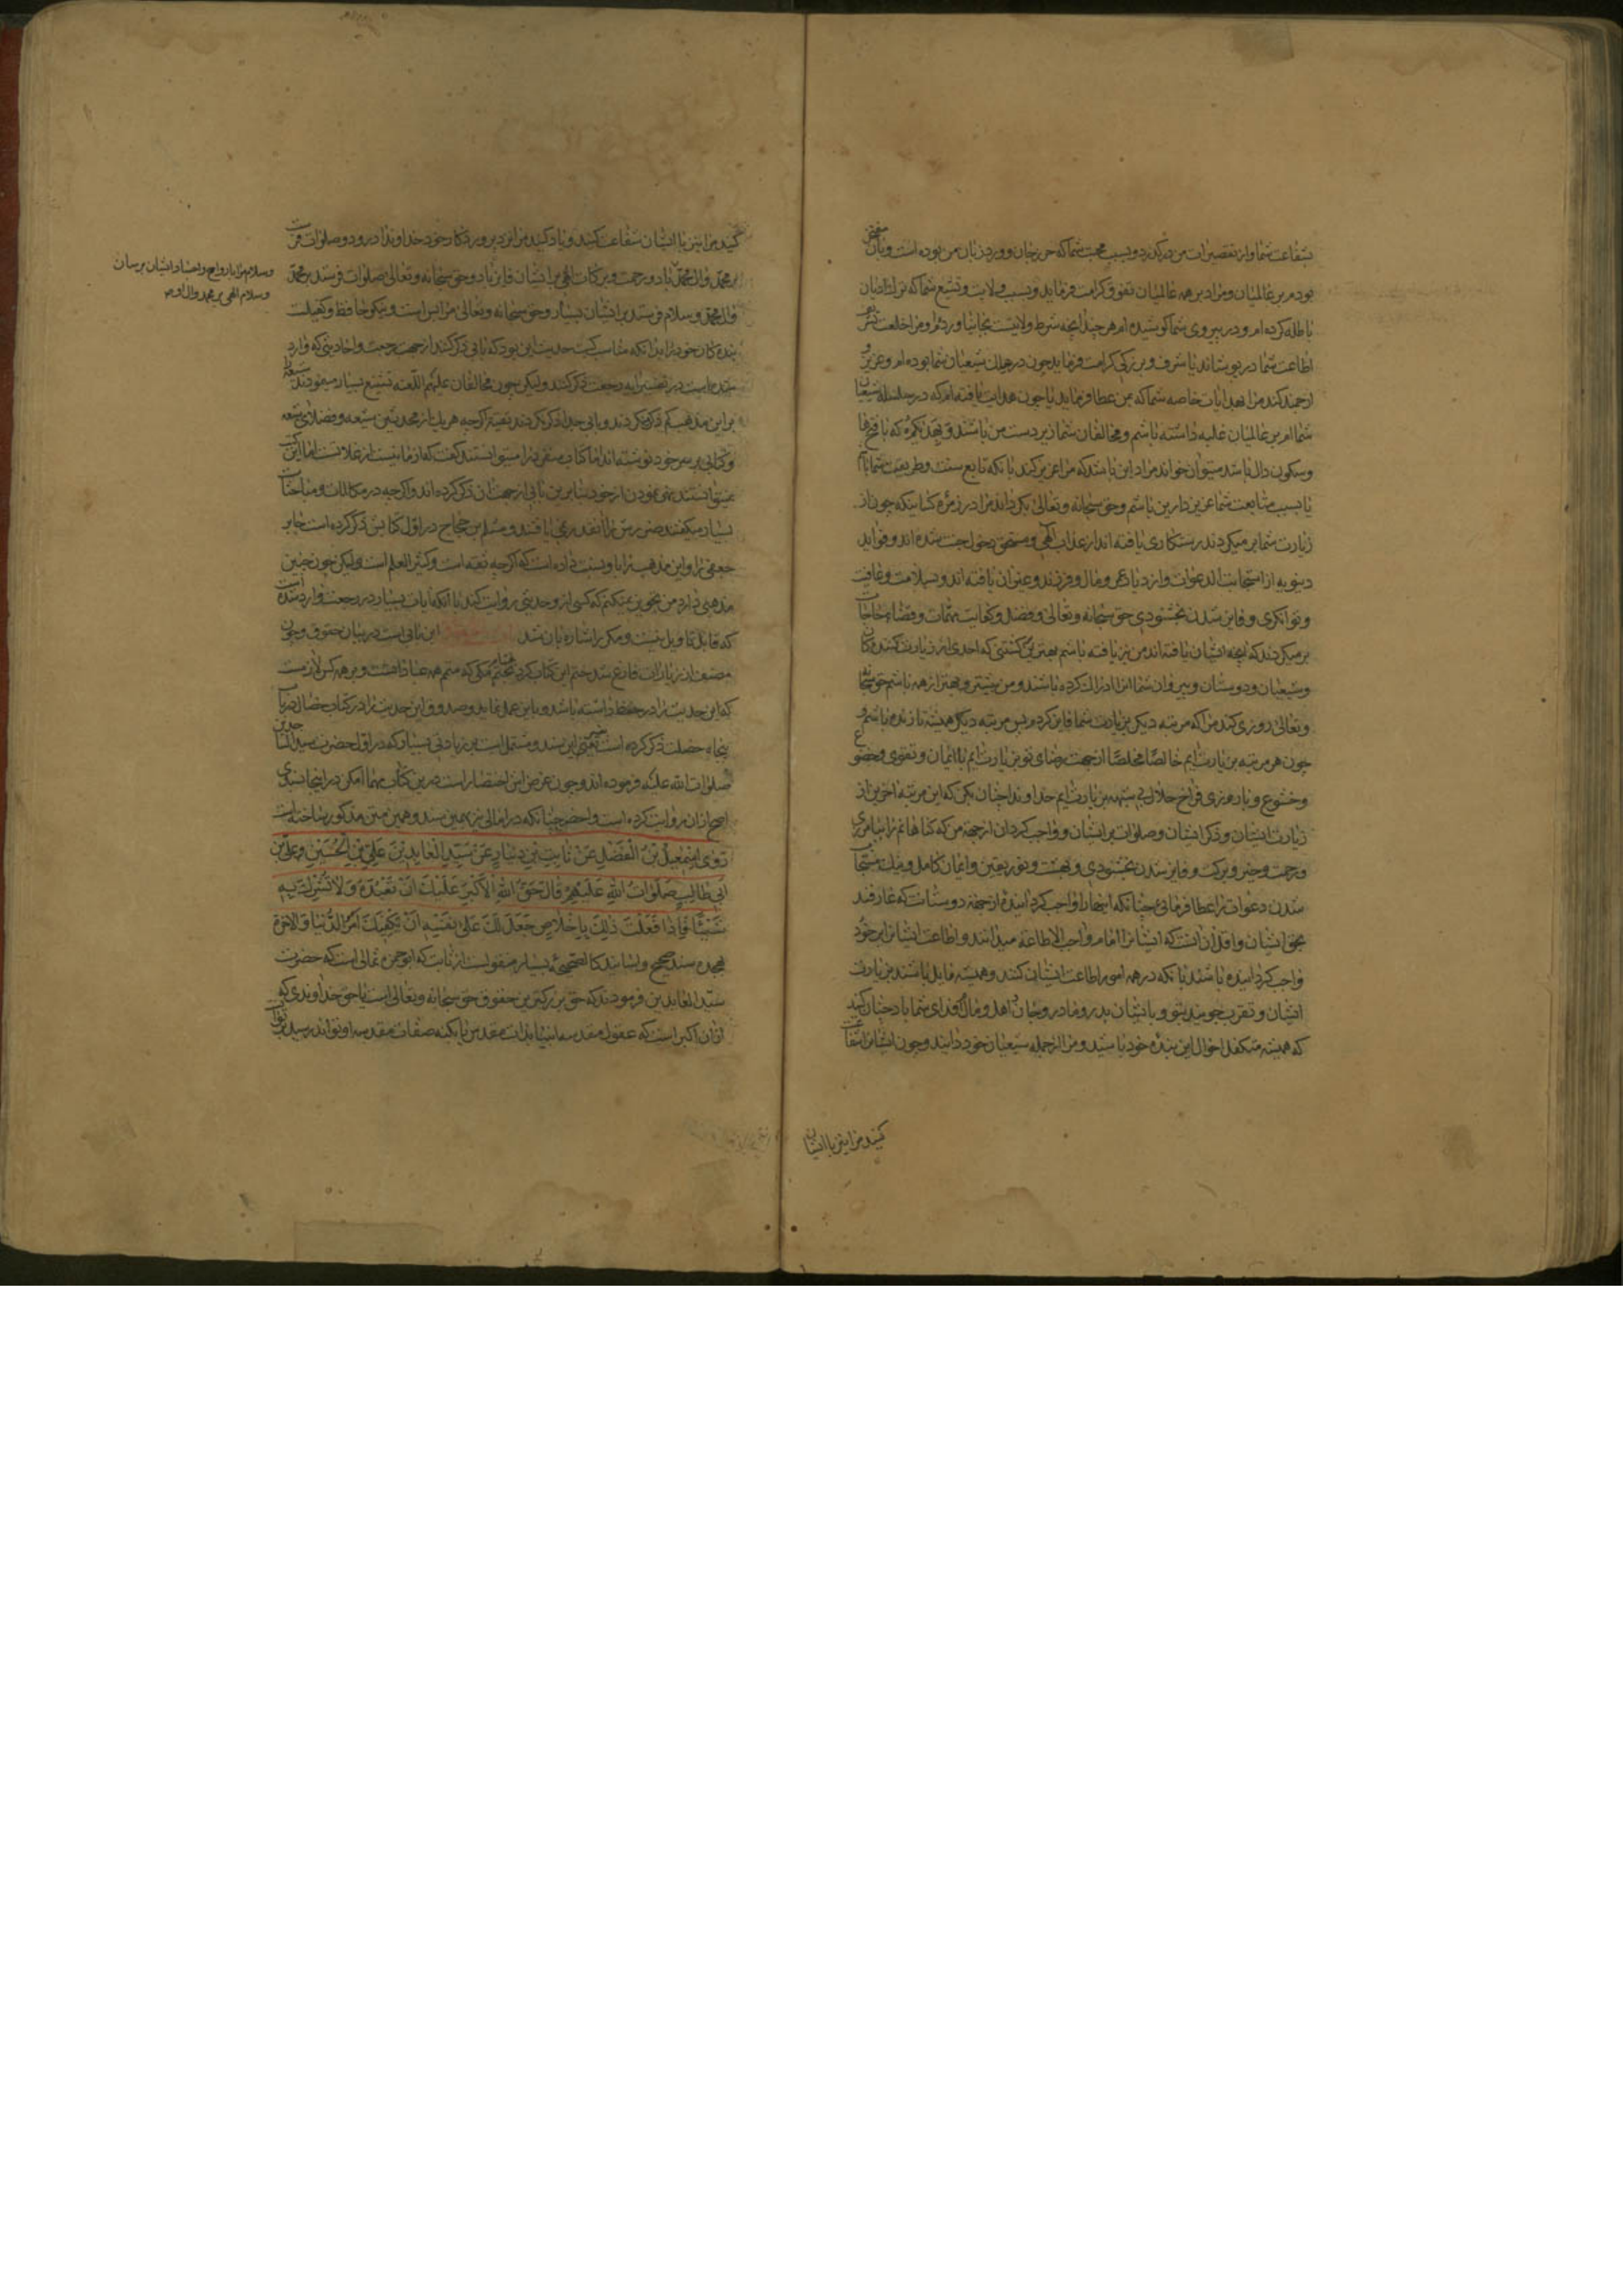 بشفاعت شما و از تقصیرات من درگذرد و بسبب محبت شما که حرز جان و ورد زبان من بوده است و بآن مفتخر
بوده‌ام بر عالمیان و مرا در همه عالمیان تفوق کرامت فرماید و بسبب ولایت و تشیع شما که
کرده‌ام و در پیروی شما کوشیده‌ام هر چند آنچه شرط ولایتست بجا نیاورده‌ام و مرا خلعت
اطاعت شما در پوشاند یا شرف و بزرگی کرامت فرماید چون در سلک شیعیان شما بوده‌ام و عزیز و
ارجمند کند مرا بهدایات خاصه شما که بمن عطا فرماید یا چون هدایت یافته‌ام که در سلسله شیعیان
شماام بر عالمیان غلبه داشته باشم و مخالفان شما زیر دست من باشند و
و سکون دال باشد میتوان خواند مراد این باشد که مرا عزیز کند بآنکه تابع سنت و طریقت شما باشم
یا بسبب متابعت شما عزیز دارین باشم و حق سبحانه و تعالی بگرداند مرا در زمره کسانیکه چون از
زیارت شما بر میگردند رستکاری یافته‌اند از عذاب الهی و مستحق دخول جنت شده‌اند و فواید
دنیویه از استجابت الدعوات و ازدیاد عمر و مال و فرزند و عنوان یافته‌اند و سلامت و عافیت
و توانکری و فایز شدن بخشنودی حق سبحانه و تعالی و فضل و کفایت مهمات و قضاء حاجات
بر میگردند که آنچه ایشان یافته‌اند من نیز یافته باشم بهترین کشتنی که احدی از زیارت کنندگان
و شیعیان و دوستان و پیروان شما آنرا ادراک کرده باشند و من بیشتر و بهتر از همه باشم حق سبحانه
و تعالی روزی کند مرا که مرتبه دیگر بزیارت شما فایز گردم پس مرتبه دیگر همیشه تا زنده باشم و
چون هر مرتبه بزیارت آیم خالصا مخلصا از جهت رضای تو بزیارت آیم با ایمان و تقوی و خضوع
و خشوع و با روزی فراخ حلال بی شبهه بزیارت آیم خداوندا چنان مکن که این مرتبه آخرین از
زیارت ایشان و ذکر ایشان و صلوات بر ایشان و واجب گردان از جهة من که گناهانم را بیامرزی
و رحمت و خیر و برکت و فایز شدن بخشنودی و بهشت و نور یقین و ایمان کامل و نیک مستجاب
شدن دعوات را عطا فرمائی چنانکه اینها را واجب گردانیده از جهة دوستانت که عارفند
بحق ایشان و اقل آن آنست که ایشانرا امام واجب الاطاعة میدانند و اطاعت ایشانرا بر خود
واجب گردانیده باشند بآنکه در همه امور اطاعت ایشان کنند و همیشه مایل باشند بزیارت
ایشان و تقرب جویند بتو و بایشان پدر و مادر و جان و اهل و مال من فدای شما باد چنان کنید
که همیشه متکفل احوال این بنده خود باشید و مرا از جمله شیعیان خود دانید و چون ایشانرا شفاعت
کنید مرا نیز با ایشان
کنید مرا نیز با ایشان شفاعت کنید و یاد کنید مرا نزد پروردگار خود خداوندا درود و صلوات فرست
بر محمد و آل محمد باد و رحمت و برکات الهی بر ایشان فایز باد و حق سبحانه و تعالی صلوات فرستد بر محمد
و سلام مرا بارواح و اجساد ایشان برسان
و سلام الهی بر محمد و آل او
و آل محمد و سلام فرستد بر ایشان بسیار و حق سبحانه و تعالی مرا بس است و نیکو حافظ و کفیلست
بندگان خود را بدانکه مناسب این بود که بابی ذکر کنند از جهت رجعت و احادیثی که وارد
شده است در تفسیر آیه رجعت ذکر کنند و لیکن چون مخالفان علیهم اللعنه تشنیع بسیار مینمودند شیعه را
بر این مذهب کم ذکر میکردند و بابی جدا ذکر نکردند تقیة اگر چه هر یک از محدثین شیعه و فضلای شیعه
و کتابی بر سر خود نوشته‌اند اما کتاب متفردا میتوانستند گفت که از ما نیست از غلات است اما این کتب
نمیتوانستند نفی نمودن از خود بنابرین بابی از جهت آن ذکر نکرده‌اند و اگر چه در مکالمات و مباحثات
بسیار میگفتند و مسلم بن حجاج در اول کتابش ذکر کرده است جابر
جعفی را و این مذهب را باو نسبت داده است که اگر چه ثقه است و کثیر العلم است و لیکن چون چنین
مذهبی دارد من تجویز نمیکنم که کسی از او حدیثی روایت کند با آنکه آیات بسیار در رجعت وارد شده است
که قابل تأویل نیست و مکرر اشاره بآن شد این بابی است در بیان حقوق و چون
مصنف از زیارات فارغ شد ختم این کتاب کرد که متمم همه عباداتست و بر همه کس لازمست
که این حدیث را در حفظ داشته باشد و باین عمل نماید و صدوق این حدیث را در کتاب خصال در باب
پنجاه خصلت ذکر کرده است بغیر این سند و مشتمل است بر زیادتی بسیار که در اول حضرت سید الساجدین
صلوات الله علیه فرموده‌اند و چون غرض این اختصار است درین کتاب مهما امکن در اینجا بسندی
اصح از آن روایت کرده است و اخصر چنانکه در امالی نیز بهمین سند و همین متن مذکور ساخته است
رَوی اِسْمعیلُ بْنُ الْفَضْلِ عَنْ ثابِتِ بْنِ دینارٍ عَنْ سَیِّدِ الْعابِدینَ عَلِیِّ بْنِ الْحُسَیْنِ بْنِ عَلِیِّ بْنِ
اَبی طالِبٍ صَلَواتُ اللهِ عَلَیْهِمْ قالَ حَقُّ اللهِ الْاَکْبَرُ عَلَیْکَ اَنْ تَعْبُدَهُ وَ لا تُشْرِکَ بِهِ
شَیْئًا فَاِذا فَعَلْتَ ذلِکَ بِاِخْلاصٍ جَعَلَ لَکَ عَلی نَفْسِهِ اَنْ یَکْفِیَکَ اَمْرَ الدُّنْیا وَ الْاخِرَةِ
بچند سند صحیح و باسانید کالصحیحه بسیار منقولست از ثابت که ابو حمزه ثمالی است که حضرت
سید العابدین فرمودند که حق بزرگترین حقوق حق سبحانه و تعالی است یا حق خداوندی که
از آن اکبر است که عقول مقدسه انبیا بذات مقدس یا بکنه صفات مقدسه او تواند رسید